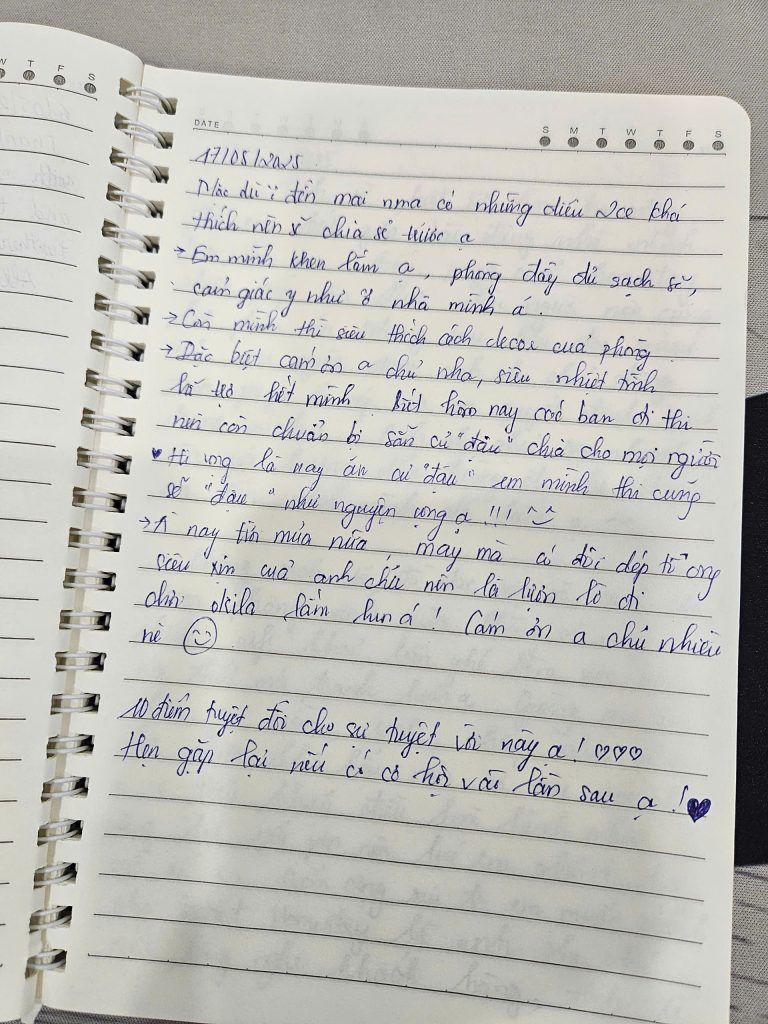 W T F S
DATE
S M T W T F S
17/05/2025
Mặc dù ii đến mai nma có những điều 2ce khá
thích nên sẽ chia sẻ trước ạ
→ Em mình khen lắm ạ, phòng đầy đủ sạch sẽ,
cảm giác y như ở nhà mình á.
→ Còn mình thì siêu thích cách decor của phòng
→ Đặc biệt cảm ơn a chủ nha, siêu nhiệt tình
hỗ trợ hết mình. Biết hôm nay có bạn đi thi
nên còn chuẩn bị sẵn củ "đậu" chia cho mọi người
♥ Hi vọng là nay ăn củ "đậu" em mình thi cũng
sẽ "đậu" như nguyện vọng ạ !!! ^‿^
→ À nay trời mưa nữa, may mà có đôi dép tổ ong
siêu xịn của anh chủ nên là lụm lô đi
chơi okila lắm lun á! Cảm ơn a chủ nhiều
nè
10 điểm tuyệt đối cho sự tuyệt vời này ạ! ♡♡♡
Hẹn gặp lại nếu có cơ hội vào lần sau ạ! ♥